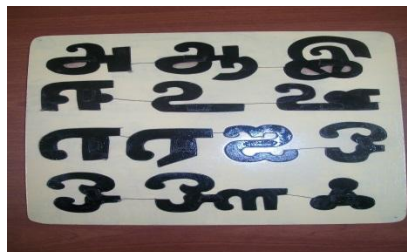 அ ஆ இ
ஈ உ ஊ
எ ஏ ஐ ஒ
ஓ ஔ ஃ